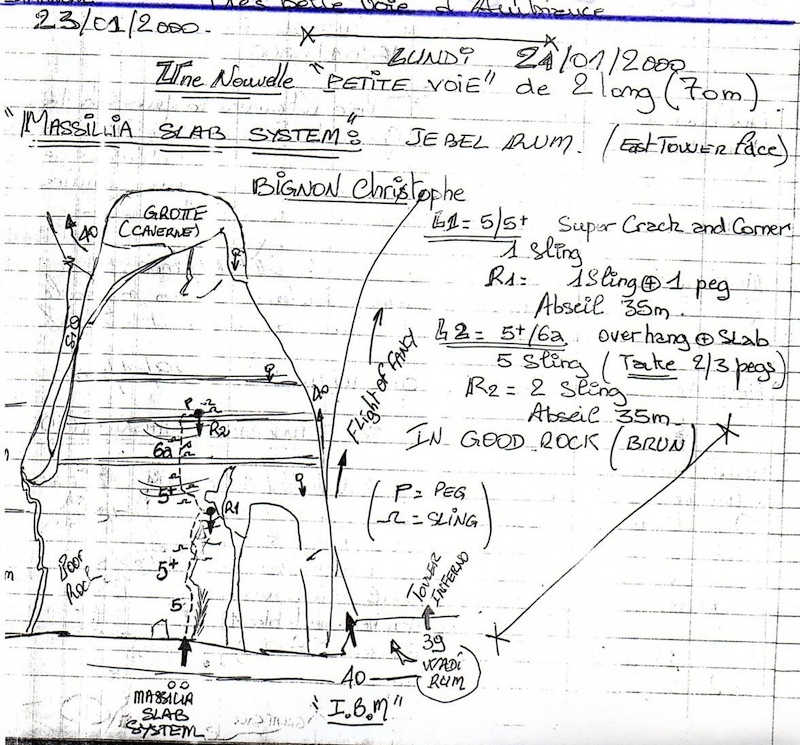 Très belle voie d'Ambiance
23/01/2000.
LUNDI 24/01/2000
Une Nouvelle "PETITE VOIE" de 2 long (70m).
"MASSILLIA SLAB SYSTEM": JEBEL RUM. (East TOWER face)
BIGNON Christophe
L1= 5/5+ Super Crack and Corner
1 Sling
R1= 1 Sling ⊕ 1 peg
Abseil 35m.
L2= 5+/6a overhang ⊕ Slab
5 Sling (Take 2/3 pegs)
R2= 2 Sling
Abseil 35m
IN GOOD ROCK (BRUN)
(P= PEG
Ω= SLING)
GROTTE
(CAVERNE)
40
40
Flight of FANCY
P
R2
6a
5+
R1
5+
5
Poor
Rock
TOWER
INFERNO
39
WADI
RUM
40
"I.B.M"
MASSILIA
SLAB
SYSTEM